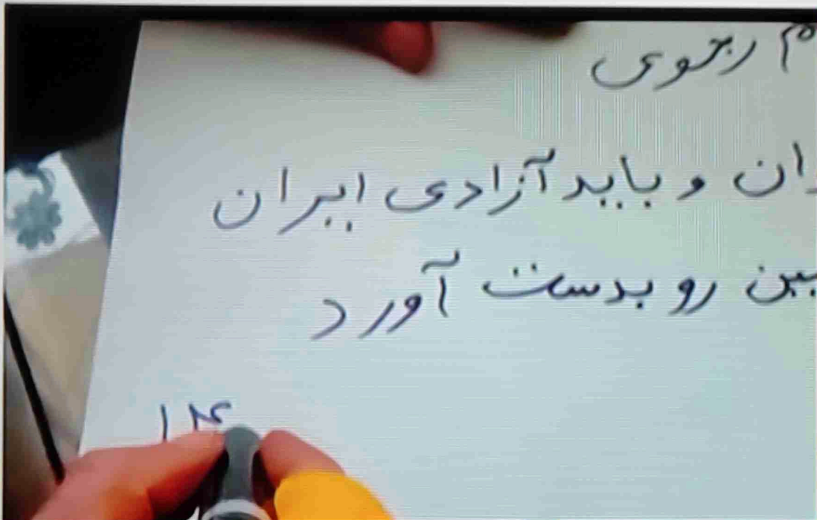 م رجوی
ان و باید آزادی ایران
بین رو بدست آورد
۱۴